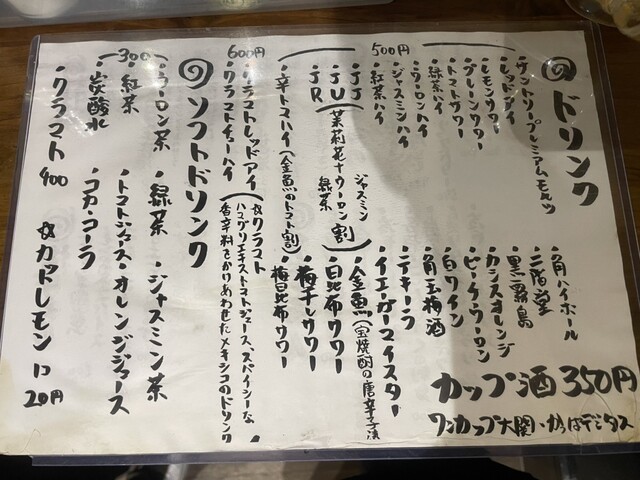 のドリンク
500円
・サントリープレミアムモルツ
・レッドアイ
・レモンサワー
・グレートンサワー
・トマトサワー
・緑茶ハイ
・ウーロンハイ
・ジャスミンハイ
・紅茶ハイ
・JJ
・JU
・JR
(茉莉花+ウーロン割)
ジャスミン
緑茶
・辛トマハイ(金魚のトマト割)
・角ハイボール
・二階堂
・黒霧島
・カシスオレンジ
・ピーチウーロン
・白ワイン
・角玉梅酒
・テキーラ
・イエーガーマイスター
・金魚(宝焼酎の唐辛子漬
・白昆布サワー
・梅干しサワー
・梅昆布サワー
カップ酒350円
ワンカップ大関・かっぱデジタス
600円
・クラマトレッドアイ
・クラマトチューハイ
(&クラマト
ハマグリエキストマトジュース、スパイシーな
香辛料をかけあわせたメキシコのドリンク
のソフトドリンク
300
・ウーロン茶・緑茶・ジャスミン茶
・紅茶・トマトジュース・オレンジジュース
・炭酸水・コカ・コーラ
・クラマト400
&カットレモン1コ20円